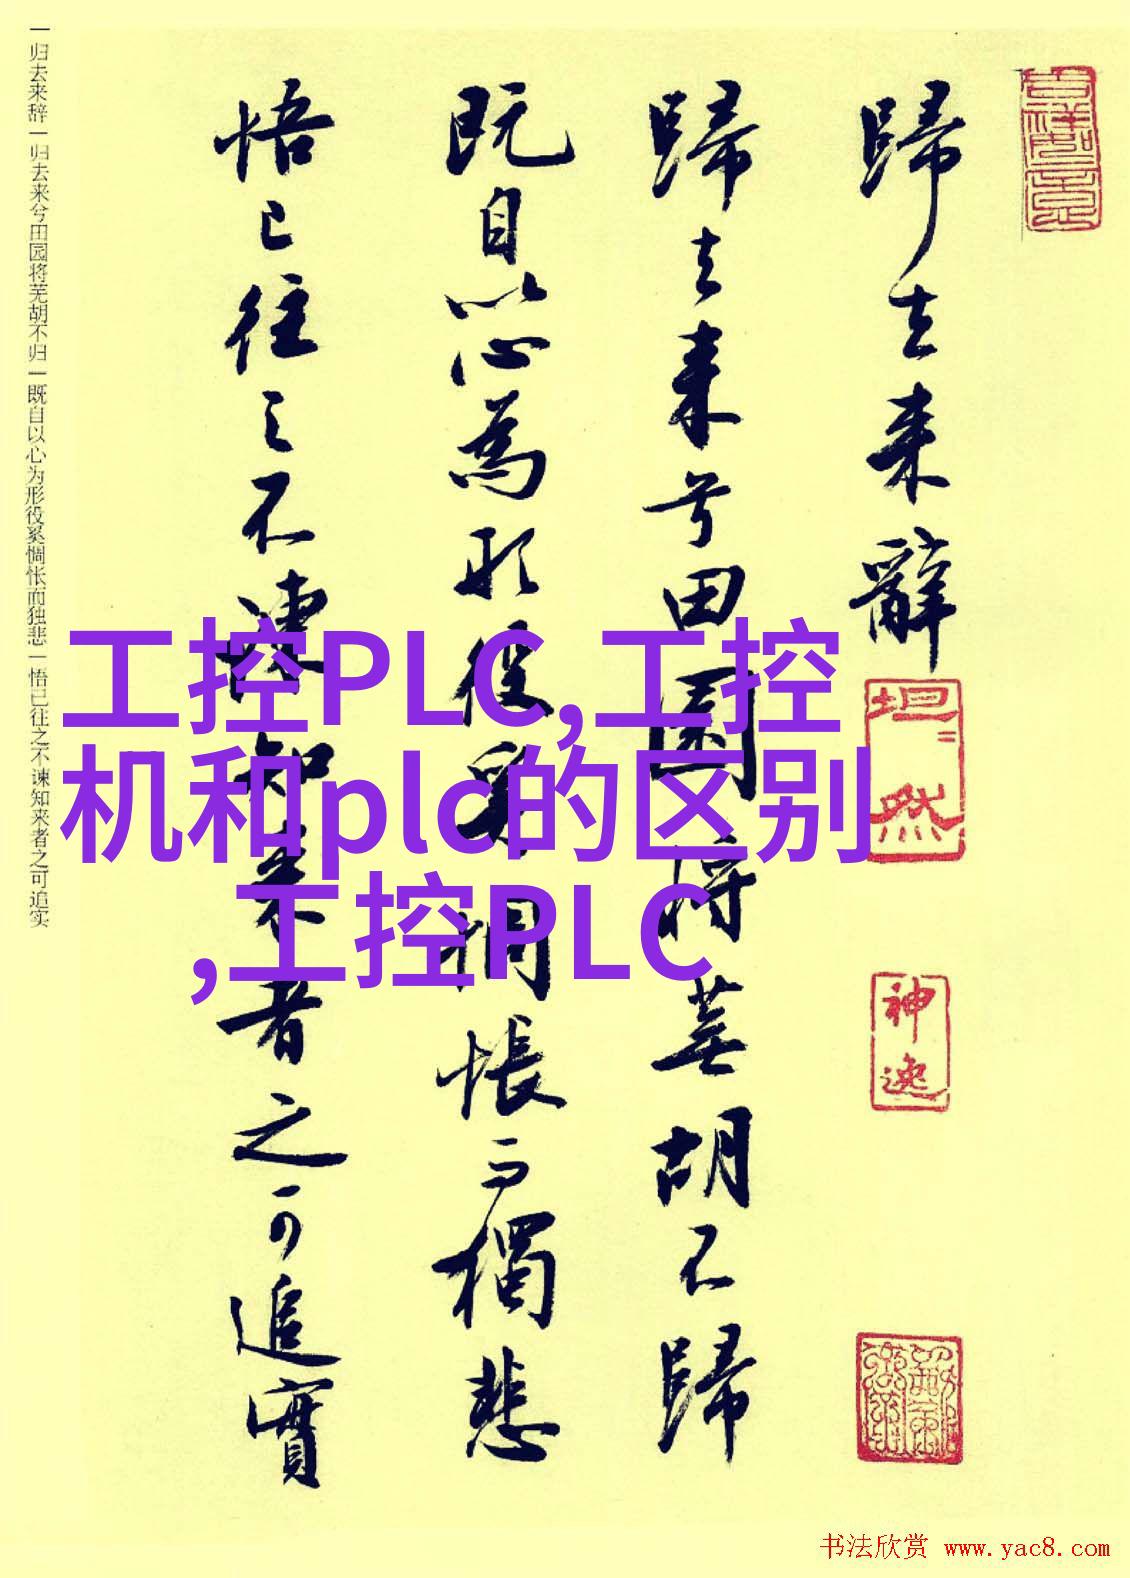 歸去来辭
歸去来兮田園将蕪胡不歸
既自以心為形役奚惆悵而獨悲
悟已往之不諫知来者之可追實
坦然
神逸
一归去来辞一归去来兮田园将芜胡不归一既自以心为形役奚惆怅而独悲一悟已往之不谏知来者之可追实
工控PLC,工控
机和plc的区别
,工控PLC
书法欣赏 www.yac8.com